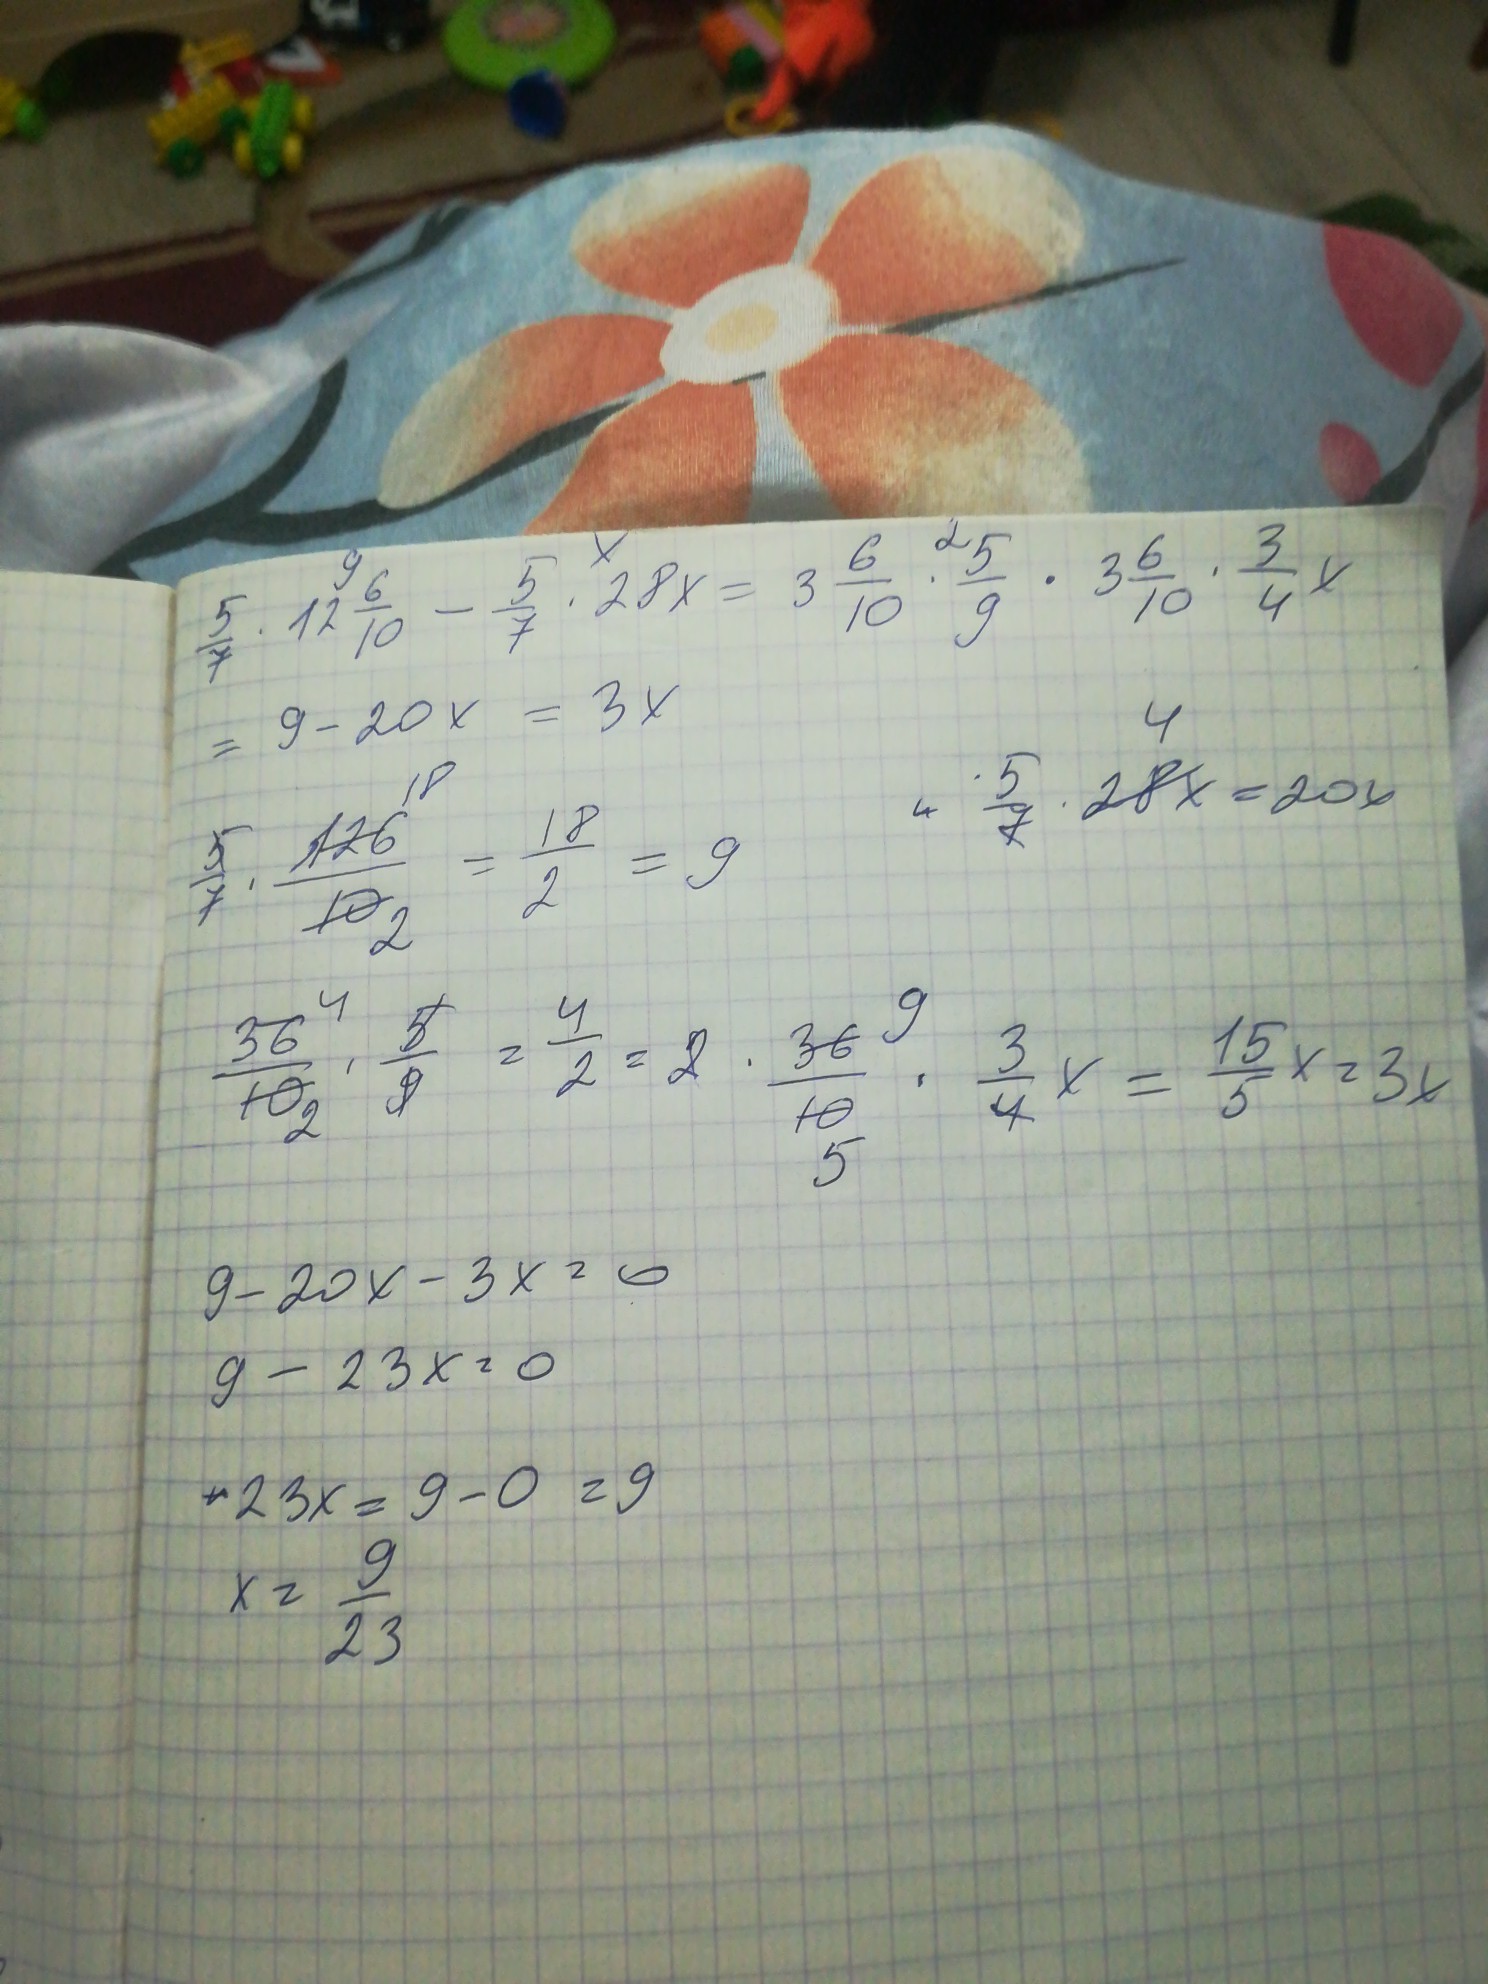 5/7 · 12 6/10 - 5/7 · 28x = 3 6/10 · 5/9 · 3 6/10 · 3/4 x
= 9 - 20x = 3x
5/7 · 28x = 20x
5/7 · 126/10 = 18/2 = 9
36/10 · 5/9 = 4/2 = 2 · 36/10 · 3/4 x = 15/5 x = 3x
9 - 20x - 3x = 0
9 - 23x = 0
-23x = 9 - 0 = 9
x = 9/23